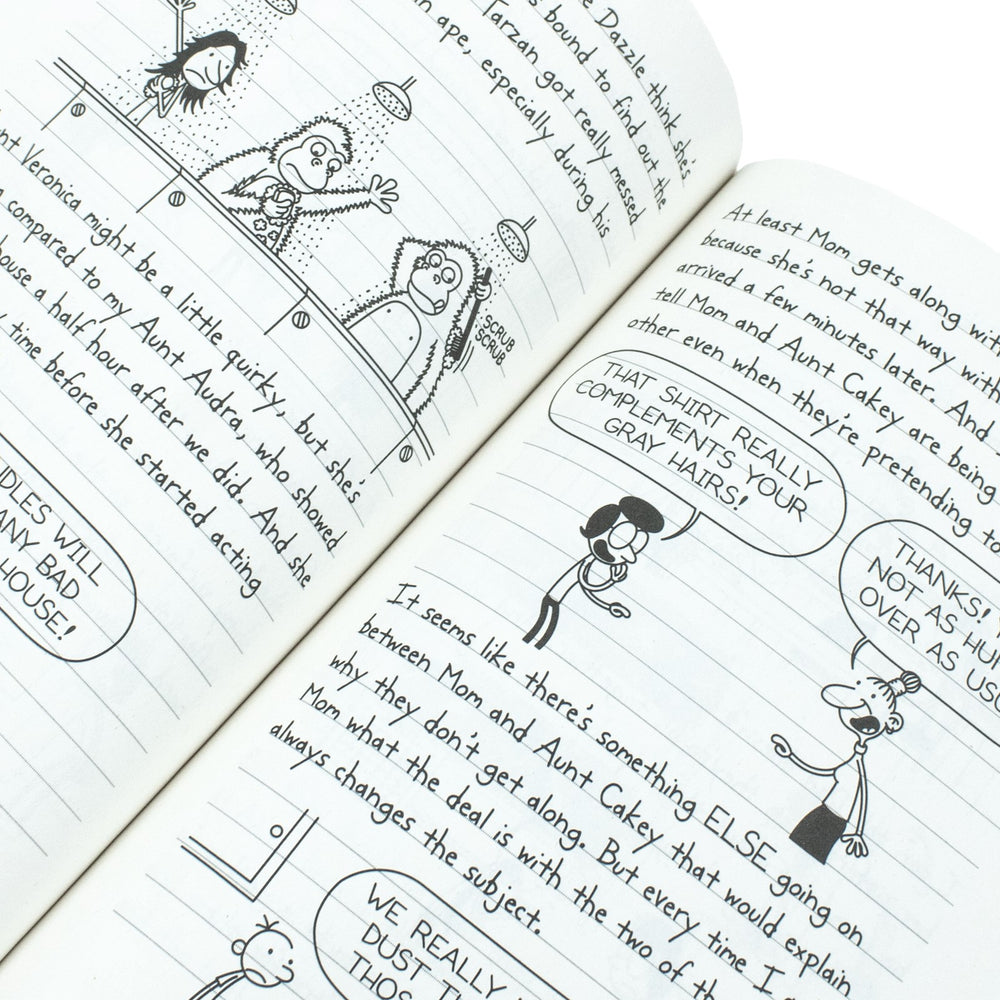 Dazzle think she's
bound to find out the
Tarzan got really messed
ape, especially during his
SCRUB
SCRUB
Veronica might be a little quirky, but she's
compared to my Aunt Audra, who showed
house a half hour after we did. And she
time before she started acting
WILL
ANY BAD
HOUSE!
At least Mom gets along
because she's not that way with
arrived a few minutes later. And
tell Mom and Aunt Cakey are being
other even when they're pretending to
THAT SHIRT REALLY
COMPLEMENTS YOUR
GRAY HAIRS!
THANKS!
NOT AS
OVER AS
It seems like there's something ELSE going on
between Mom and Aunt Cakey that would explain
why they don't get along. But every time I
Mom what the deal is with the two of
always changes the subject.
WE REALLY
DUST